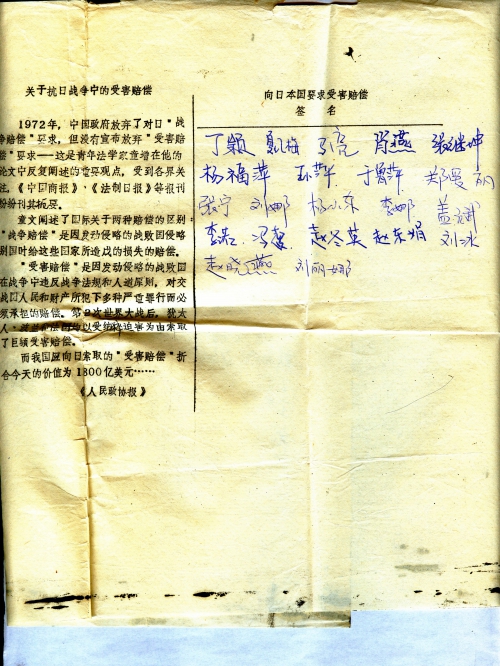 关于抗日战争中的受害赔偿
1972年，中国政府放弃了对日“战
争赔偿”要求，但没有宣布放弃“受害赔
偿”要求——这是青年法学家童增在他的
论文中反复阐述的重要观点，受到各界关
注，《中国商报》、《法制日报》等报刊
纷纷刊其概要。
童文阐述了国际关于两种赔偿的区别：
“战争赔偿”是因发动侵略的战败国侵略
别国时给这些国家所造成的损失的赔偿。
“受害赔偿”是因发动侵略的战败国
在战争中违反战争法规和人道原则，对交
战国人民和财产所犯下多种严重罪行而必
须承担的赔偿。第2次世界大战后，犹太
人、以受纳粹迫害为由索取
了巨额受害赔偿。
而我国应向日索取的“受害赔偿”折
合今天的价值为1800亿美元……
《人民政协报》
向日本国要求受害赔偿
签 名
丁颖 肖燕
杨福萍 郑曼丽
张宁 刘娜 杨小东 李娜
赵冬英 赵东娟 刘冰
赵晓燕 刘丽娜